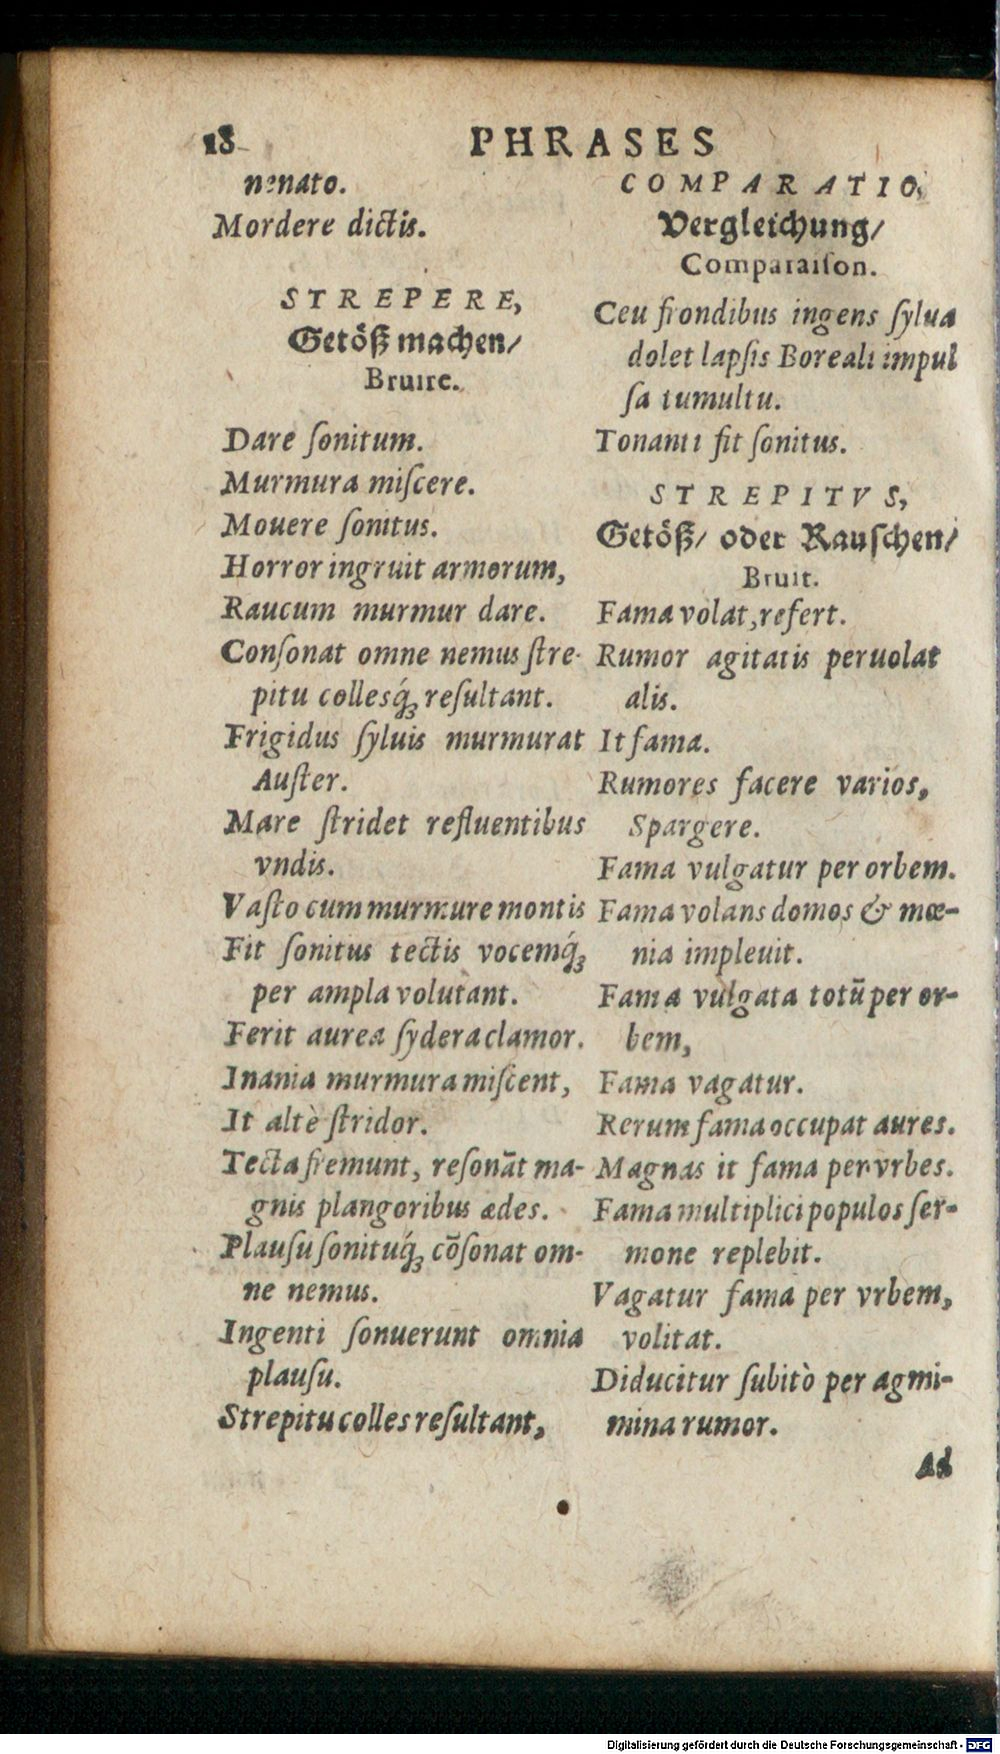 18 PHRASES
nenato.
Mordere dictis.
STREPERE,
Getöß machen/
Bruire.
Dare ſonitum.
Murmura miſcere.
Mouere ſonitus.
Horror ingruit armorum,
Raucum murmur dare.
Conſonat omne nemus ſtre-
pitu collesq́ꝫ reſultant.
Frigidus ſyluis murmurat
Auſter.
Mare ſtridet refluentibus
vndis.
Vaſto cum murmure montis
Fit ſonitus tectis vocemq́ꝫ
per ampla volutant.
Ferit aurea ſydera clamor.
Inania murmura miſcent,
It altè ſtridor.
Tecta fremunt, reſonāt ma-
gnis plangoribus ædes.
Plauſu ſonituq́ꝫ cōſonat om-
ne nemus.
Ingenti ſonuerunt omnia
plauſu.
Strepitu colles reſultant,
COMPARATIO,
Vergleichung/
Comparaiſon.
Ceu frondibus ingens ſylua
dolet lapſis Boreali impul
ſa tumultu.
Tonanti fit ſonitus.
STREPITVS,
Getöß/ oder Rauſchen/
Bruit.
Fama volat, refert.
Rumor agitatis peruolat
alis.
It fama.
Rumores facere varios,
Spargere.
Fama vulgatur per orbem.
Fama volans domos & mœ-
nia impleuit.
Fama vulgata totũ per or-
bem,
Fama vagatur.
Rerum fama occupat aures.
Magnas it fama per vrbes.
Fama multiplici populos ſer-
mone replebit.
Vagatur fama per vrbem,
volitat.
Diducitur ſubitò per agmi-
mina rumor.
Ad
Digitalisierung gefördert durch die Deutsche Forschungsgemeinschaft - DFG